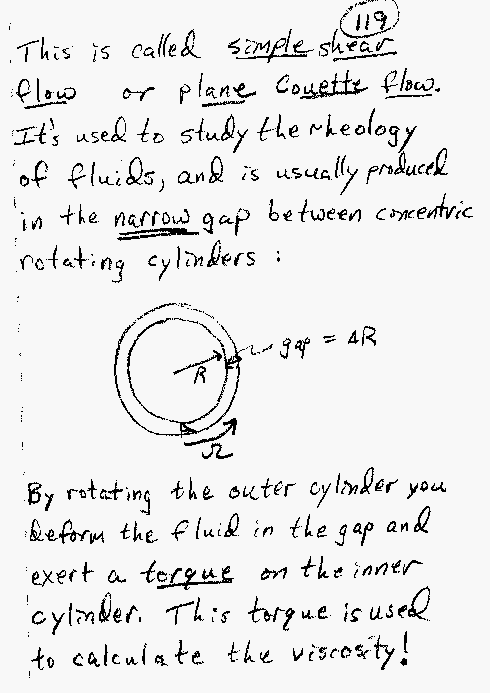 119
This is called simple shear
flow or plane Couette flow.
It's used to study the rheology
of fluids, and is usually produced
in the narrow gap between concentric
rotating cylinders :
gap = ΔR
R
Ω
By rotating the outer cylinder you
deform the fluid in the gap and
exert a torque on the inner
cylinder. This torque is used
to calculate the viscosity!